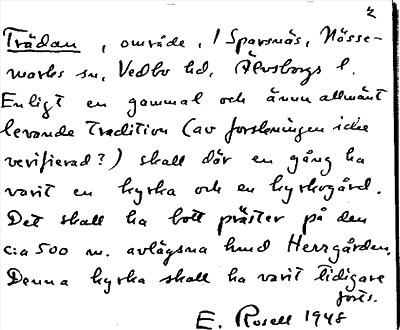 2
Trädan, område, i Sparsnäs, Nösse-
marks sn, Vedbo hd, Älvsborgs l.
Enligt en gammal och ännu allmänt
levande tradition (av forskningen icke
verifierad?) skall där en gång ha
varit en kyrka och en kyrkogård.
Det skall ha bott präster på den
c:a 500 m. avlägsna hmd Herrgården.
Denna kyrka skall ha varit tidigare
forts.
E. Rosell 1948